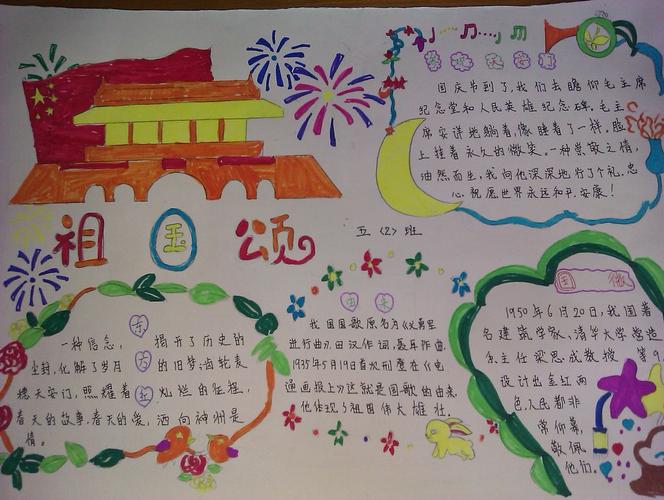 祖国颂
五〈2〉班
国庆节到了,我们去瞻仰毛主席
纪念堂和人民英雄纪念碑。毛主
席安详地躺着,像睡着了一样,脸
上挂着永久的微笑,一种崇敬之情,
油然而生,我向他深深地行了个礼,忠
心祝愿世界永远和平、安康!
一种信念,
揭开了历史的
尘封,化解了岁月
的旧梦;齿轮表
穗天安门,照耀着
灿烂的征程,
春天的故事,春天的爱,洒向神州是
情。
由来
我国国歌原名为《义勇军
进行曲》,田汉作词,聂耳作曲,
1935年5月19日首次刊登在《电
通画报上》,这就是国歌的由来,
他体现了祖国伟大雄壮.
国徽
1950年6月20日,我国著
名建筑学家、清华大学营造
系主任梁思成教授
设计出金红两
色,人民都非
常仰慕,
敬佩
他们。